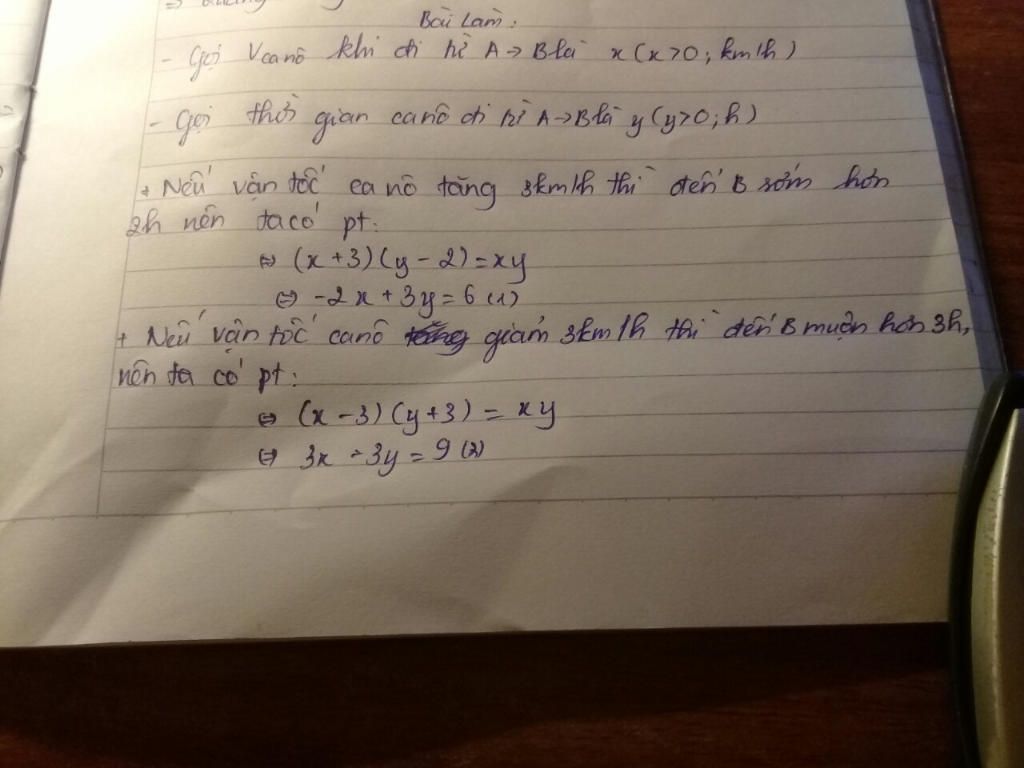 Bài Làm:
- Gọi Vcanô khi đi từ A → B là x (x > 0; km/h)
- Gọi thời gian canô đi từ A → B là y (y > 0; h)
+ Nếu vận tốc ca nô tăng 3km/h thì đến B sớm hơn
2h nên ta có pt:
⇔ (x + 3)(y - 2) = xy
⇔ -2x + 3y = 6 (1)
+ Nếu vận tốc canô giảm 3km/h thì đến B muộn hơn 3h,
nên ta có pt:
⇔ (x - 3)(y + 3) = xy
⇔ 3x - 3y = 9 (2)